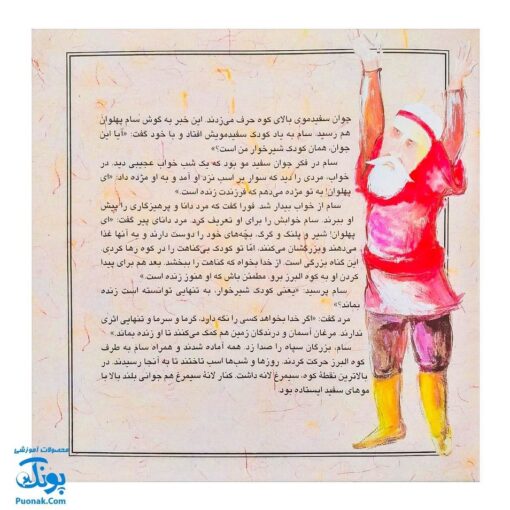 جوان سفیدموی بالای کوه حرف می‌زدند. این خبر به گوش سام پهلوان
هم رسید. سام به یاد کودک سفیدمویش افتاد و با خود گفت: «آیا این
جوان، همان کودک شیرخوار من است؟»
سام در فکر جوان سفید مو بود که یک شب خواب عجیبی دید. در
خواب، مردی را دید که سوار بر اسب نزد او آمد و به او مژده داد: «ای
پهلوان! به تو مژده می‌دهم که فرزندت زنده است.»
سام از خواب بیدار شد. فوراً گفت که مرد دانا و پرهیزگاری را پیش
او ببرند. سام خوابش را برای او تعریف کرد. مرد دانای پیر گفت: «ای
پهلوان! شیر و پلنگ و گرگ، بچّه‌های خود را دوست دارند و به آنها غذا
می‌دهند و بزرگشان می‌کنند. امّا تو کودک بی‌گناهت را در کوه رها کردی.
این گناه بزرگی است. از خدا بخواه که گناهت را ببخشد. بعد هم برای پیدا
کردن او به کوه البرز برو. مطمئن باش که او هنوز زنده است.»
سام پرسید: «یعنی کودک شیرخوار، به تنهایی توانسته است زنده
بماند؟»
مرد گفت: «اگر خدا بخواهد کسی را نگه دارد، گرما و سرما و تنهایی اثری
ندارند. مرغان آسمان و درندگان زمین هم کمک می‌کنند تا او زنده بماند.»
سام، بزرگان سپاه را صدا زد. همه آماده شدند و همراه سام به طرف
کوه البرز حرکت کردند. روزها و شب‌ها اسب تاختند تا به آنجا رسیدند. در
بالاترین نقطهٔ کوه، سیمرغ لانه داشت. کنار لانهٔ سیمرغ هم جوانی بلند بالا با
موهای سفید ایستاده بود.
محصولات آموزشی
پونک
Puonak.Com